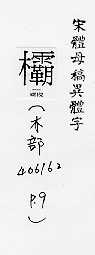 宋體母稿異體字
欛
(木部
406162
P.9)